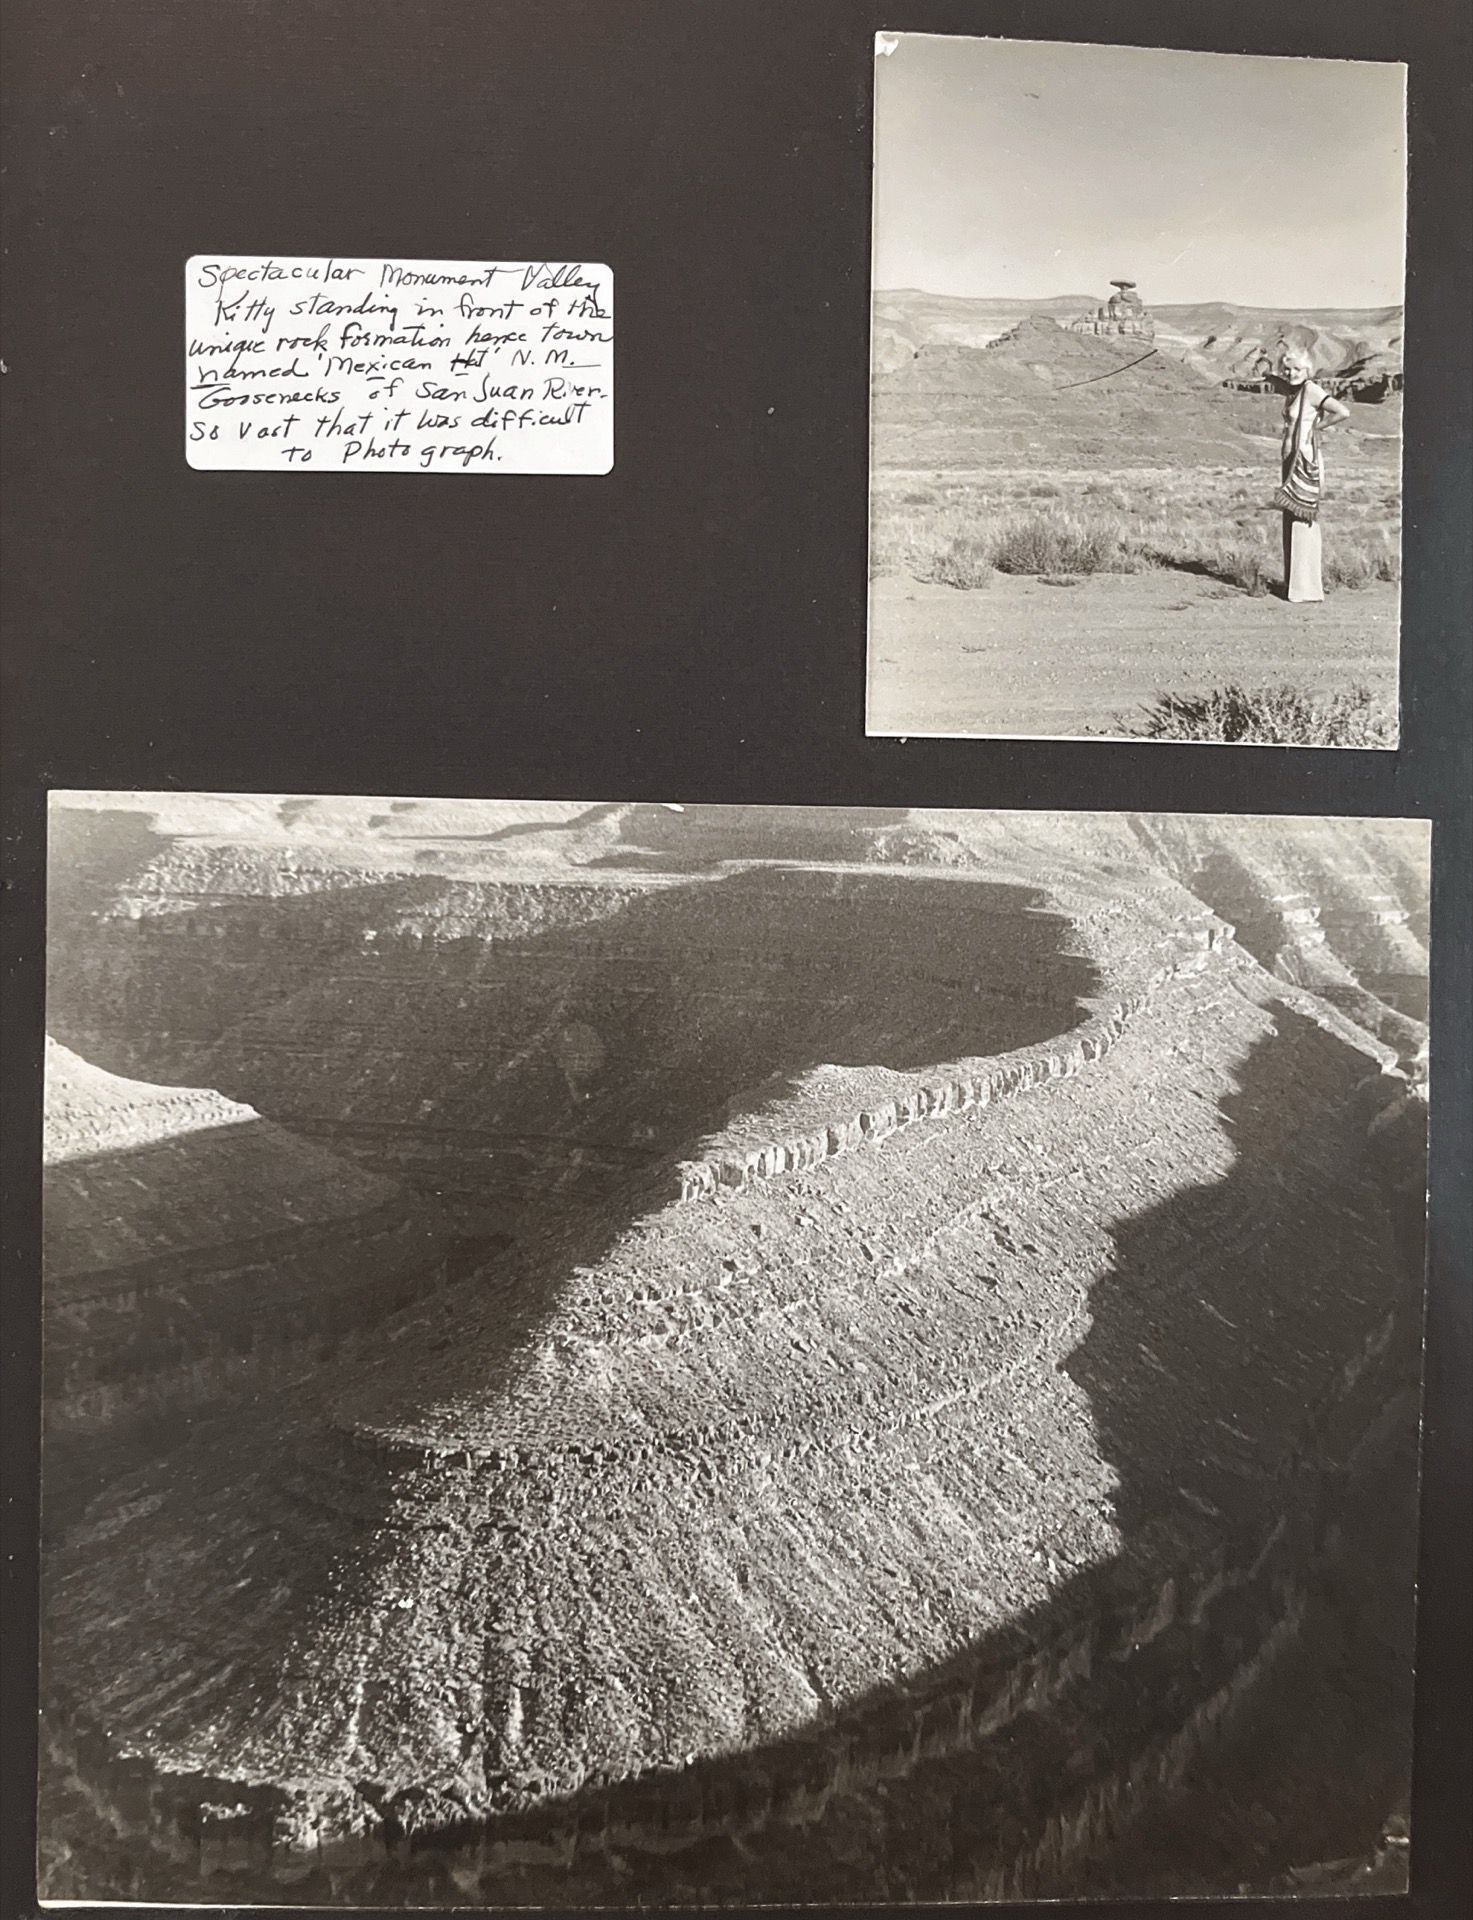 Spectacular Monument Valley
Kitty standing in front of the
unique rock formation hence town
named 'Mexican Hat' N.M.
Goosenecks of San Juan River.
So vast that it was difficult
to Photograph.